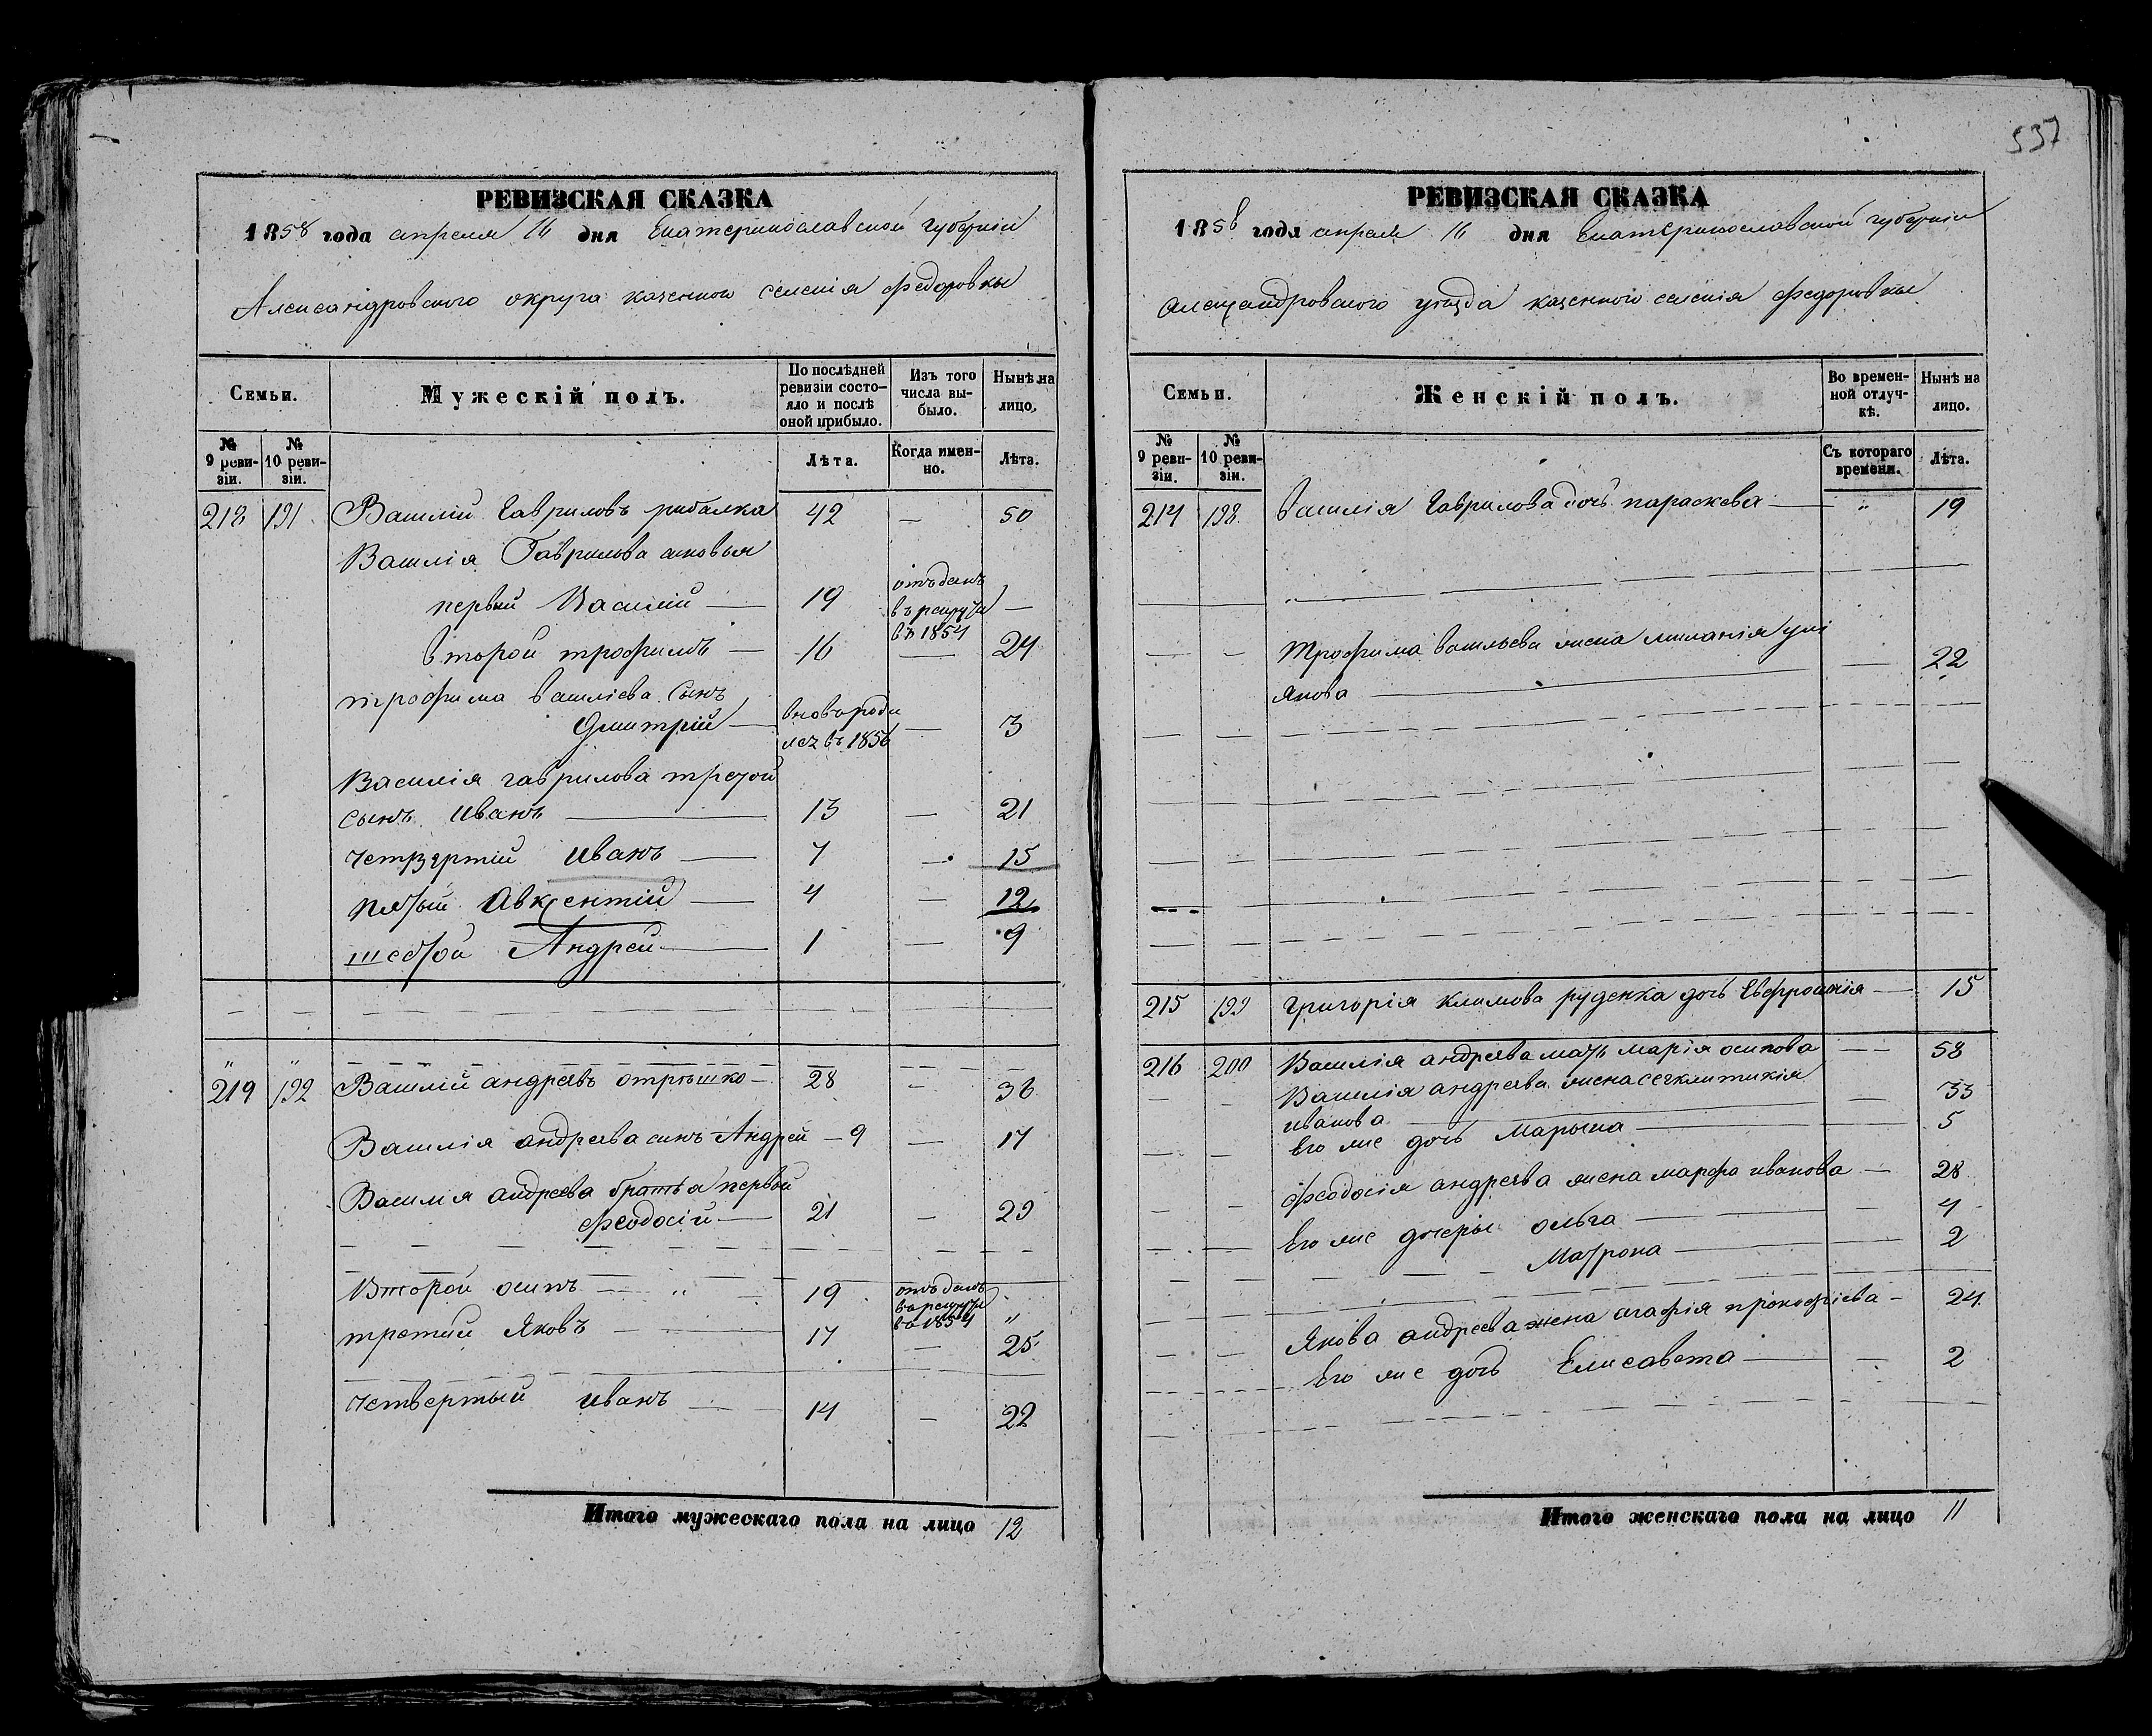 537
РЕВИЗСКАЯ СКАЗКА
1858 года апреля 16 дня Екатеринославской губернiи
Александровского округа казенной селенiя федоровки
Семьи.
Мужескiй полъ.
По послѣдней ревизiи состо-
яло и послѣ
оной прибыло.
Изъ того
числа вы-
было.
Нынѣ на
лицо.
№
9 реви-
зiи.
№
10 реви-
зiи.
Лѣта.
Когда имен-
но.
Лѣта.
218 191 Василiй Гавриловъ рибалка 42 — 50
Василiя Гаврилова синовья
первый Василiй — 19 отъданъ въ рекруты въ 1854 —
второй трофимъ — 16 — 24
трофима василiева сынъ
Дмитрiй — вновь роди лся въ 1856 — 3
Василiя гаврилова третой
сынъ иванъ — 13 — 21
четвертiй иванъ — 7 — 15
пятый Авксентiй — 4 — 12
шестой Андрей — 1 — 9
219 192 Василiй андреевъ отрешко — 28 — 36
Василiя андреева синъ Андрей — 9 — 17
Василiя андреева братья первый
феодосiй — 21 — 29
Второй осипъ — 19 отъданъ въ рекруты въ 1854 "
третiй Яковъ — 17 — 25
четвертый иванъ — 14 — 22
Итого мужескаго пола на лицо 12
РЕВИЗСКАЯ СКАЗКА
1858 года апреля 16 дня Екатеринославской губернiи
Александровского уѣзда казенной селенiя федоровки
Семьи.
Женскiй полъ.
Во времен-
ной отлуч-
кѣ.
Нынѣ на
лицо.
№
9 реви-
зiи.
№
10 реви-
зiи.
Съ котораго
времени.
Лѣта.
214 198 Василiя Гаврилова дочь параскева — " 19
Трофима васильева жена
Якова — 22
215 199 Григорiя климова руденка дочь Евфросинiя — 15
216 200 Василiя андреева мать марiя осипова — 58
Василiя андреева жена
иванова — 33
Его же дочь Марына — 5
феодосiя андреева жена марфа иванова — 28
Его же дочери ольга — 4
Матрона — 2
Якова андреева жена агафiя прокофiева — 24
Его же дочь Елисавета — 2
Итого женскаго пола на лицо 11